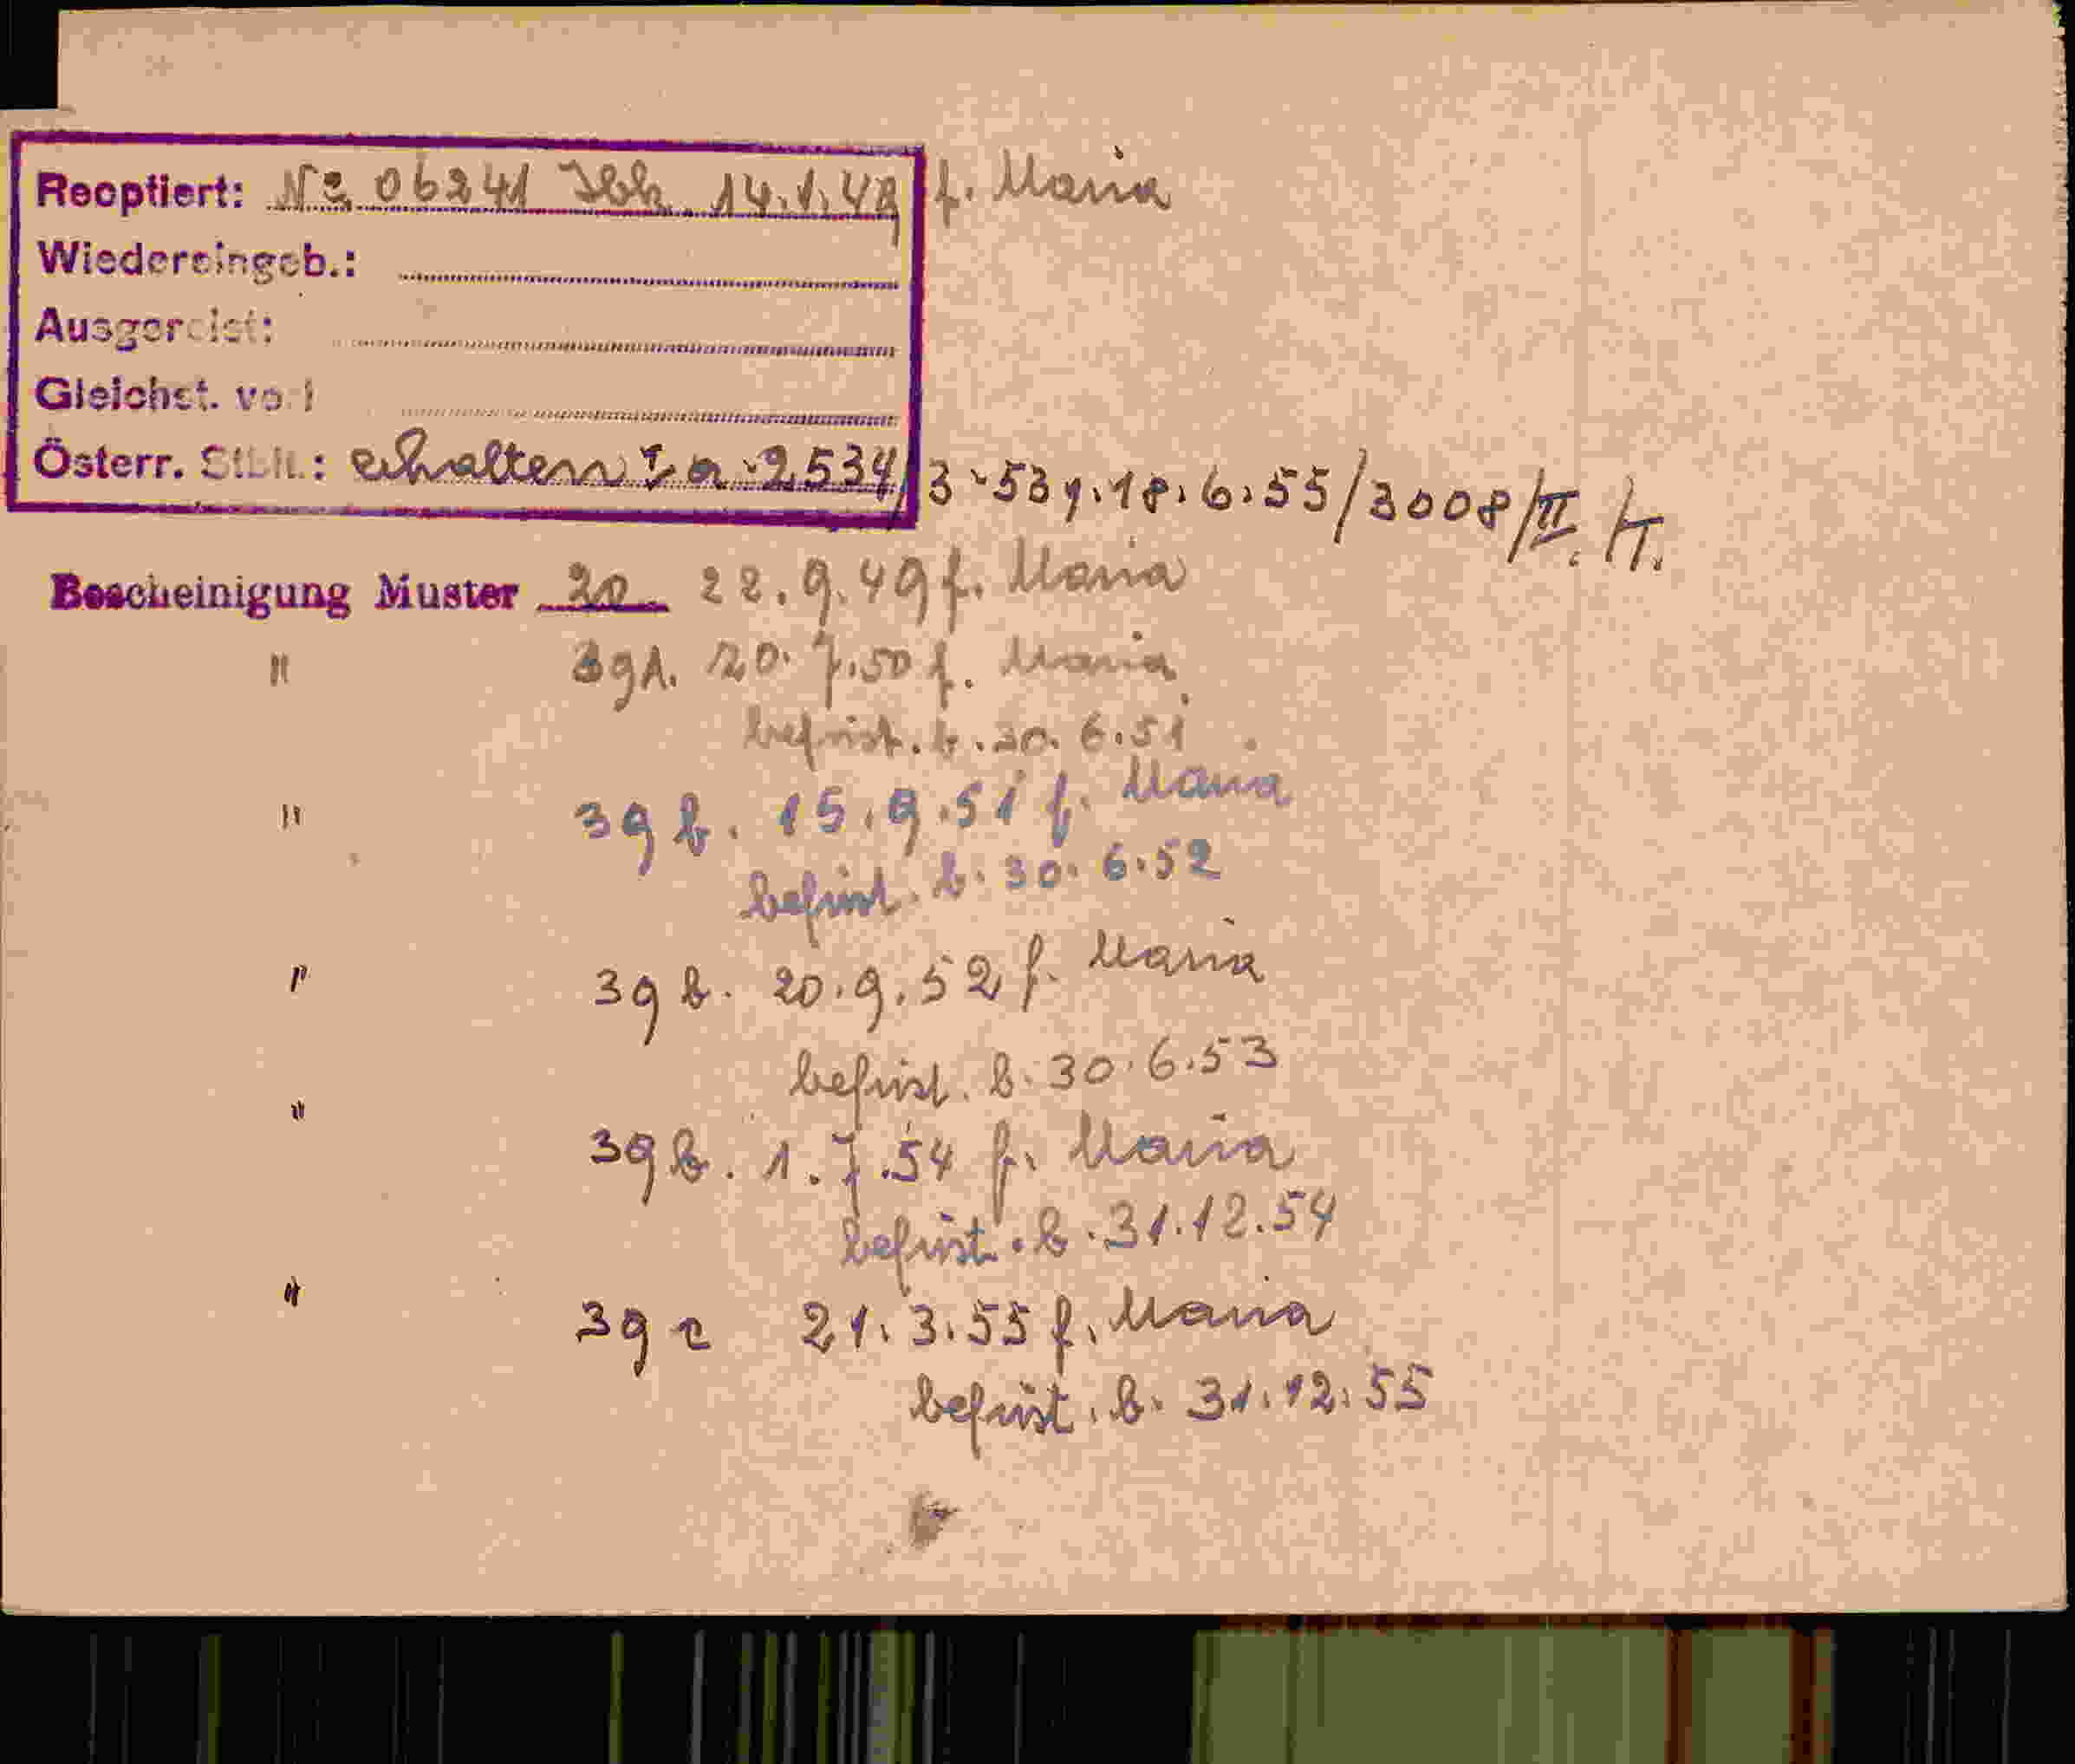 Reoptiert: No 06241 Ibk. 14.1.49 f. Maria
Wiedereingeb.:
Ausgereist:
Gleichst. vorl
Österr. Stbft.: erhalten I a - 2534/3-53 v. 18.6.55/3008/II. /T.
Bescheinigung Muster 20 22.9.49 f. Maria
" 39A. 20.7.50 f. Maria
befrist. b. 30.6.51
" 39 b. 15.9.51 f. Maria
befrist. b. 30.6.52
" 39 b. 20.9.52 f. Maria
befrist. b. 30.6.53
" 39 b. 1.7.54 f. Maria
befrist. b. 31.12.54
" 39 c 21.3.55 f. Maria
befrist. b. 31.12.55